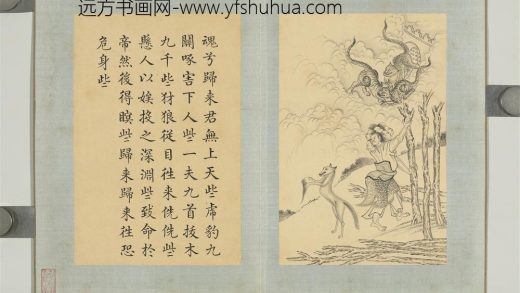 远方书画网- www.yfshuhua.com
魂兮歸来君無上天些虎豹九
關啄害下人些一夫九首拔木
九千些豺狼從目往来侁侁些
懸人以娭投之深淵些致命於
帝然後得瞑些歸来歸来往恐
危身些